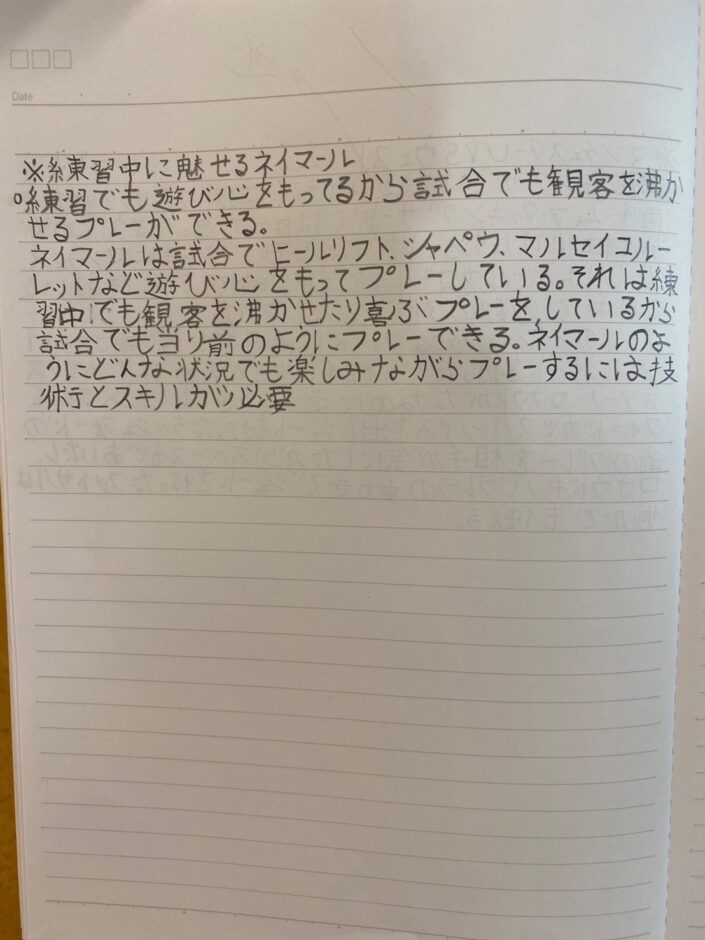 Date
※練習中に魅せるネイマール
○練習でも遊び心をもってるから試合でも観客を沸か
せるプレーができる。
ネイマールは試合でヒールリフト、シャペウ、マルセイユルー
レットなど遊び心をもってプレーしている。それは練
習中でも観客を沸かせたり喜ぶプレーをしているから
試合でも当り前のようにプレーできる。ネイマールのよ
うにどんな状況でも楽しみながらプレーするには技
術とスキルが必要